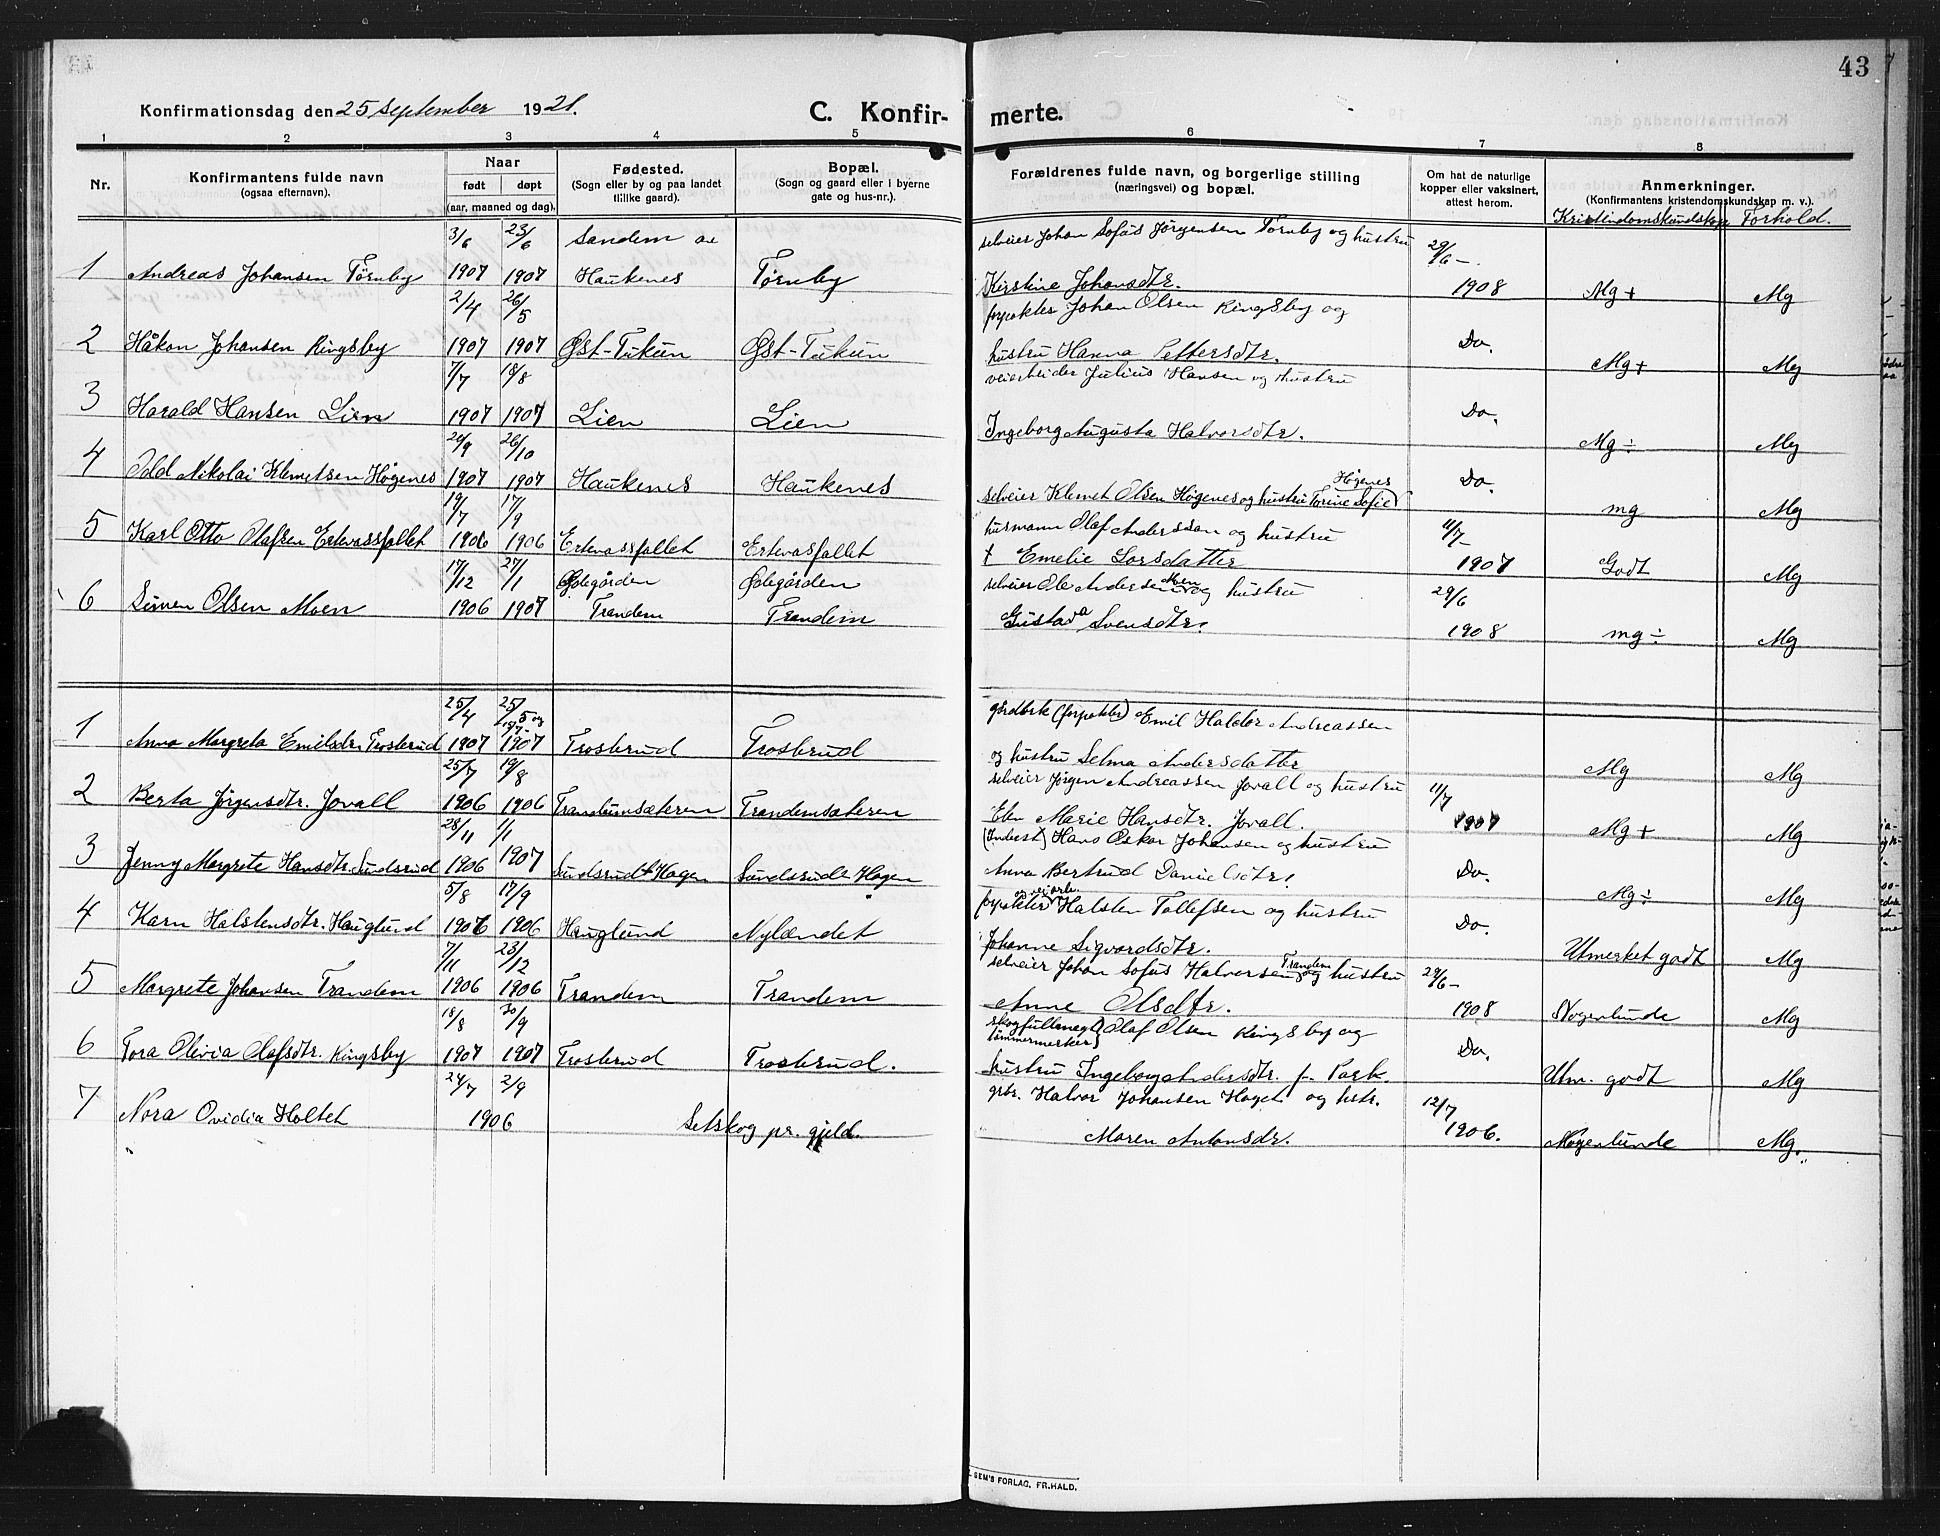 43
Konfirmationsdag den 25 September 1921.
C. Konfir-
merte.
1 2 3 4 5 6 7 8
Nr.
Konfirmantens fulde navn
(ogsaa efternavn).
Naar
født døpt
(aar, maaned og dag).
Fødested.
(Sogn eller by og paa landet
tillike gaard).
Bopæl.
(Sogn og gaard eller i byerne
gate og hus-nr.).
Forældrenes fulde navn, og borgerlige stilling
(næringsvei) og bopæl.
Om hat de naturlige
kopper eller vaksinert,
attest herom.
Anmerkninger.
(Konfirmantens kristendomskundskap m. v.).
Kristindomskundskap Forhold.
3/6 23/6 Sandem av selveier Johan Sofus Jørgensen Tørnby og hustru 29/6 –
1 Andreas Johansen Tørnby 1907 1907 Haukenes Tørnby Kirstine Johansdtr. 1908 Mg + Mg
2/4 26/5 forpakter Johan Olsen Ringsby og
2 Håkon Johansen Ringsby 1907 1907 Øst-Tukun Øst-Tukun hustru Hanna Pettersdtr. Do. Mg + Mg
7/7 18/8 veiarbeider Julius Hansen og hustru
3 Harald Hansen Lien 1907 1907 Lien Lien Ingeborg Augusta Halvorsdtr. Do. Mg ÷ Mg
26/10 Høgenes
4 Odd Nikolai Klemetsen Høgenes 1907 1907 Haukenes Haukenes selveier Klemet Olsen Høgenes og hustru Torine Sofie Do. mg Mg
19/7 17/9 husmann Olaf Anderssen og hustru 11/7 –
5 Karl Otto Olafsen Ertevassfallet 1906 1906 Ertevassfallet Ertevasfallet Emelie Larsdatter 1907 Godt Mg
17/12 27/1 Ødegården Ødegården selveier Ole Andersen Moen og hustru 29/6
6 Simen Olsen Moen 1906 1907 Trandem Trandem Gustava Svensdtr. 1908 mg ÷ Mg
25/4 25/5 og gårdbrk (forpakter) Emil Haldor Andreassen
1 Anna Margreta Emilsdtr. Trosterud 1907 1907 Trosterud Trosterud og hustru Selma Andersdatter Mg Mg
25/7 19/8 selveier Jørgen Andreassen Jovall og hustru 11/7
2 Berta Jørgensdtr. Jovall 1906 1906 Trandemsæteren Trandemsæteren Elen Marie Hansdtr. Jovall. 1907 Mg + Mg
28/11 1/1 (Inderst) Hans Oskar Johansen og hustru
3 Jenny Margrete Hansdtr. Sundsrud 1906 1907 Sundsrud Hagen Sundsrud Hagen Anna Bertrud Danielsdtr. Do. Mg ÷ Mg
5/8 17/9 forpakter og veiarb. Halsten Tollefsen og hustru
4 Karn Halstensdtr. Hauglund 1906 1906 Hauglund Nylændet Johanne Sigvardsdtr. Do. Utmerket godt Mg
7/11 23/12 selveier Johan Sofus Halvorsen Trandem og hustru 29/6 –
5 Margrete Johansen Trandem 1906 1906 Trandem Trandem Anne Olsdtr. 1908 Nogenlunde Mg
18/8 30/9 skogfullmegt. tømmermerker Olaf Olsen Ringsby og
6 Tora Olivia Olafsdtr. Ringsby 1907 1907 Trosterud Trosterud. hustru Ingeborg Andersdtr. f. Park. Do. Utm. godt Mg
24/7 2/9 grbr. Halvor Johansen Hagen og hstr. 12/7
7 Nora Ovidia Holtet 1906 Setskog pr. gjeld. Maren Antonsdr. 1906. Nogenlunde Mg.
GEM'S FORLAG, FR.HALD.